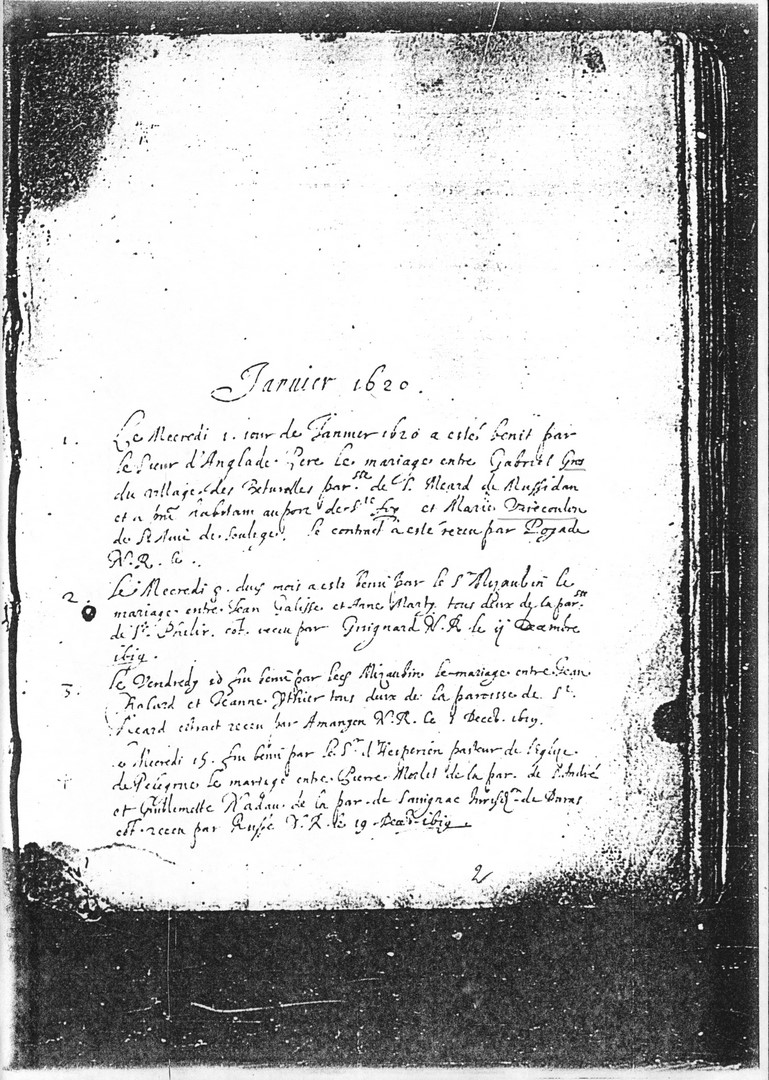 Januier 1620.
1. Le Mecredi 1. iour de Januier 1620 a estés benit par
le sieur d'Anglade Pere le mariage entre Gabriel Gros
du village des par.sse de St. Meard de Mussidan
et a habitant au port de Ste foy et Marie
de St de le contract a esté receu par Pozade
N.R. le .
2. Le Mecredi 8. dus mois a este benit par le Sr Mizaubin le
mariage entre Jean Galisse et Anne Marty tous deux de la par.sse
de St. cot. receu par Guignard N.R. le Decembre
1619.
3. Le Vendredy 10 fut benit par led Mizaubin le mariage entre Jean
Ralard et Jeanne Ythier tous deux de la paroisse de St.
cōtract receu par Amanzen N.R. le Decēb. 1619.
4 Le Mecredi 15. fut benit par le Sr. d'Hesperien pasteur de l'eglise
de Pelegrue le mariage entre Pierre Merlet de la par. de St. André
et Guillemette Nadau de la par. de Sauignac de Duras
cot. receu par Russe N.R. le 19 Decēb. 1619.
2